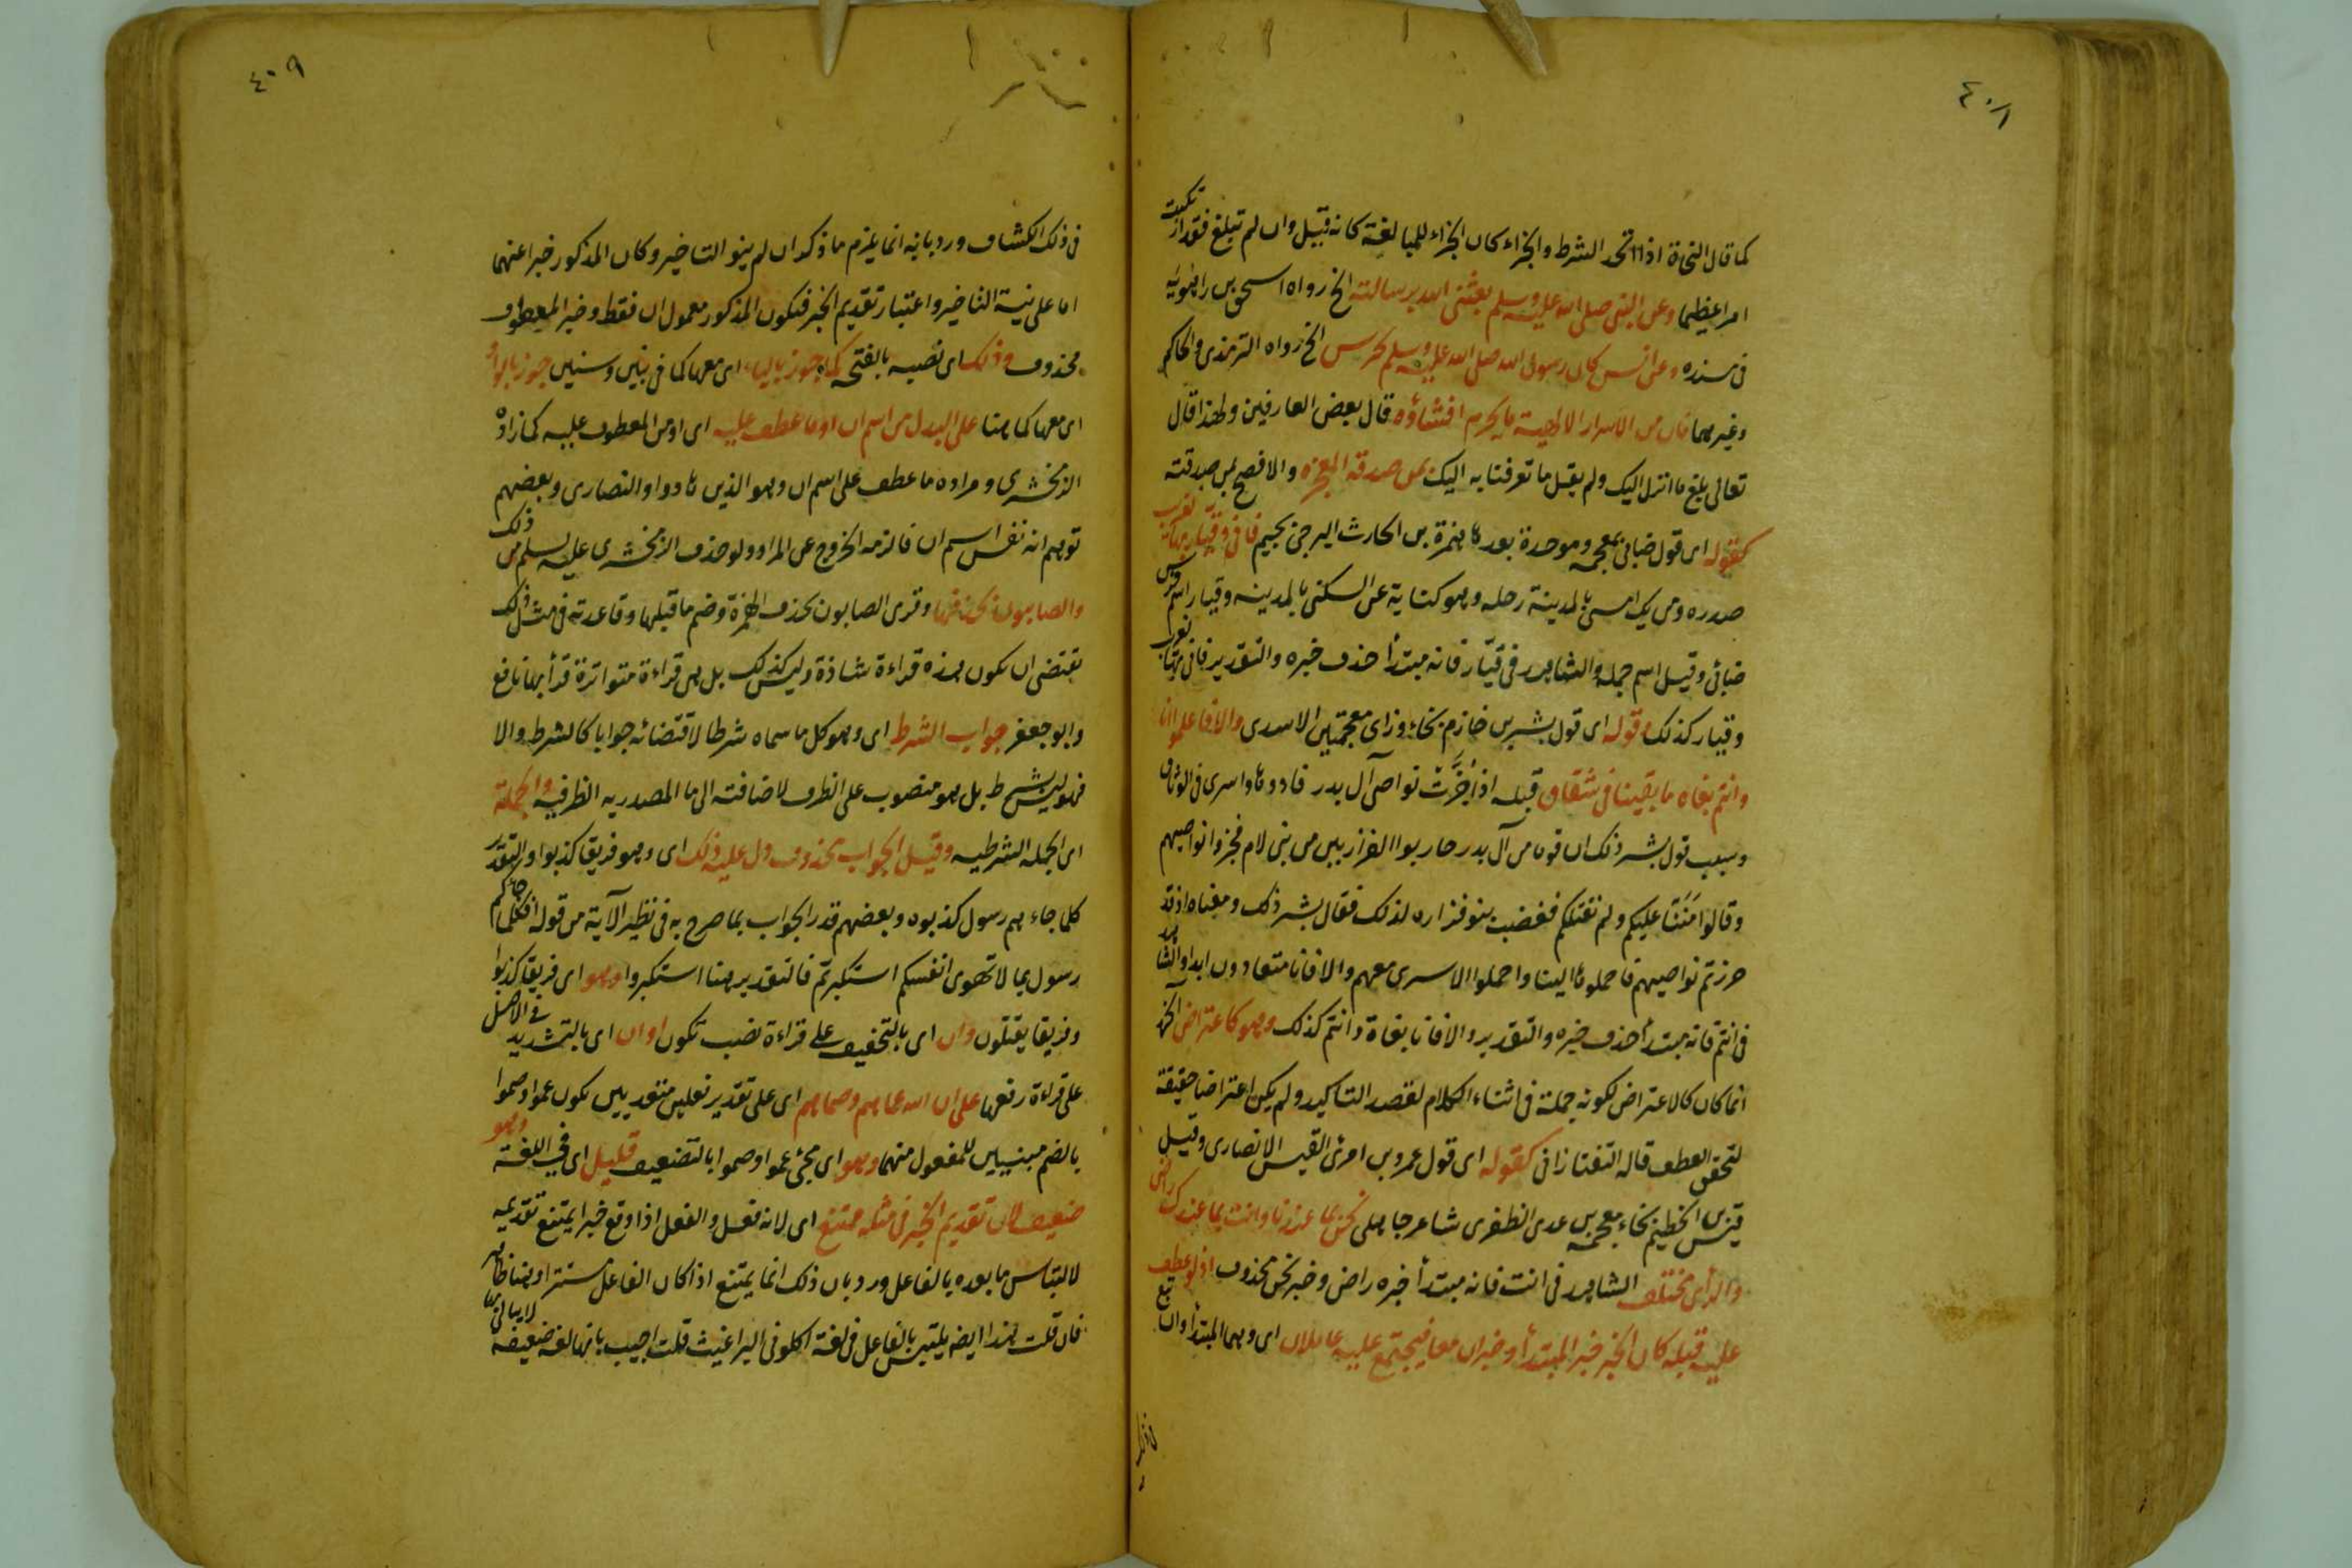 ٤٠٨
كما قال النحاة اذا اتحد الشرط والجزاء كان الجزاء للمبالغة كانه قيل وان لم تبلغ فقد ارتكبت
امرا عظيما وعن النبي صلى الله عليه وسلم بعثني الله برسالته الخ رواه اسحق بن راهويه
في مسنده وعن انس كان رسول الله صلى الله عليه وسلم يحرس الخ رواه الترمذي والحاكم
وغيرهما فان من الاسرار الالهية ما يحرم افشاؤه قال بعض العارفين ولهذا قال
تعالى بلغ ما انزل اليك ولم يقل ما تعرفنا به اليك بمن صدقه المعجزة والافصح بمن صدقته
كقوله اى قول ضابئ بمعجمة وموحدة بعدها همزة بن الحارث البرجمي بجيم فاني وقيار بها لغريب
صدره ومن يك امسى بالمدينة رحله وهو كناية عن السكنى بالمدينه وقيار اسم فرس
ضابئ وقيل اسم جمله والشاهد في قيّار فانه مبتدأ حذف خبره والتقدير فاني بها لغريب
وقيار كذلك وقوله اى قول بشر بن خازم بخاء وزاى معجمتين الاسدى والا فاعلموا انا
وانتم بغاه ما بقينا في شقاق قبله اذا جُزَّت نواصى آل بدر فادوها واسرى في الوثاق
وسبب قول بشر ذلك ان قوما من آل بدر حاربوا الفزاريين من بني لام فجزوا نواصيهم
وقالوا مَنَنّا عليكم ولم نقتلكم فغضب بنو فزاره لذلك فقال بشر ذلك ومعناه اذ قد
جززتم نواصيهم فاحملوها الينا واحملوا الاسرى معهم والا فانا متعادون ابدا والشاهد
في انتم فانه مبتدأ حذف خبره والتقدير والا فانا بغاة وانتم كذلك وهو كاعتراض الخ
انما كان كالاعتراض لكونه جملة في اثناء الكلام لقصد التاكيد ولم يكن اعتراضا حقيقة
لتحقق العطف قاله التفتازاني كقوله اى قول عمرو بن امرئ القيس الانصارى وقيل
قيس بن الخطيم بخاء معجمة بن عدى الظفرى شاعر جاهلى نحن بما عندنا وانت بما عندك راض
والرأى مختلف الشاهد في انت فانه مبتدأ خبره راض وخبر نحن محذوف اذ لو عطف
عليه قبله كان الخبر خبر المبتدأ وخبر ان معا فيجتمع عليه عاملان اى وهما المبتدأ وان تبع
٤٠٩
في ذلك الكشاف ورد بانه انما يلزم ما ذكر ان لم ينو التاخير وكان المذكور خبرا عنهما
اما على نية التاخير واعتبار تقديم الخبر فيكون المذكور معمول ان فقط وخبر المعطوف
محذوف وذلك اى نصبه بالفتحه كما جوز بالياء اى معها كما في بنين وسنين جوز بالواو
اى معها كما هنا على البدل من اسم ان او ما عطف عليه اى او من المعطوف عليه كما زاده
الزمخشرى ومراده ما عطف على اسم ان وهو الذين هادوا والنصارى وبعضهم
توهم انه نفس اسم ان فالزمه الخروج عن المراد ولو حذف الزمخشرى عليه لسلم من ذلك
والصابيون وقرئ الصابون بحذف الهمزة وضم ما قبلها وقاعدته في مثل ذلك
تقتضى ان تكون هذه قراءة شاذة وليس كذلك بل هى قراءة متواترة قرأ بها نافع
وابو جعفر جواب الشرط اى وهو كل ما سماه شرطا لاقتضائه جوابا كالشرط والا
فهو ليس بشرط بل هو منصوب على الظرف لاضافته الى ما المصدريه الظرفيه والجملة
اى الجمله الشرطيه وقيل الجواب محذوف دل عليه ذلك اى وهو فريقا كذبوا والتقدير
كلما جاءهم رسول كذبوه وبعضهم قدر الجواب بما صرح به في نظير الآية من قوله افكلما جاءكم
رسول بما لا تهوى انفسكم استكبرتم فالتقدير هنا استكبروا وهو اى فريقا كذبوا
وفريقا يقتلون وان اى بالتخفيف على قراءة نصب تكون او ان اى بالتشديد في الاصل
على قراءة رفعها على ان الله عماهم وصماهم اى على تقدير فعلين متعديين تكون عموا وصموا
بالضم مبنيين للمفعول منهما وهو اى مجئ عموا وصموا بالتضعيف قليل اى في اللغة وهو
ضعيف لان تقديم الخبر في مثله ممتنع اى لانه فعل والفعل اذا وقع خبرا يمتنع تقديمه
لالتباس ما بعده بالفاعل ورد بان ذلك انما يمتنع اذا كان الفاعل مستترا وهنا ظاهر
فان قلت هذا ايضا يلتبس بالفاعل في لغة اكلوني البراغيث قلت اجيب بانها لغه ضعيفه لا يبالى بها